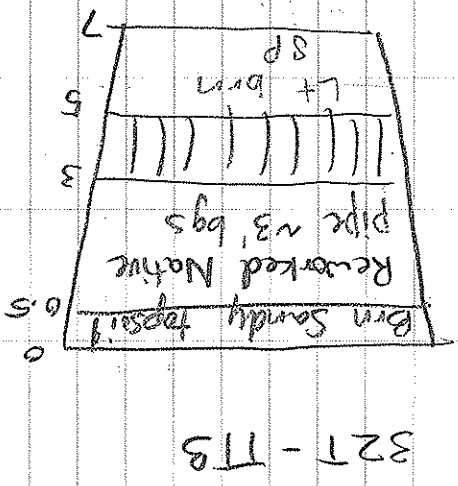 0
0.5 Brn Sandy topsoil
Reworked Native
pipe ~3' bgs
3
5
Lt brn
SP
7